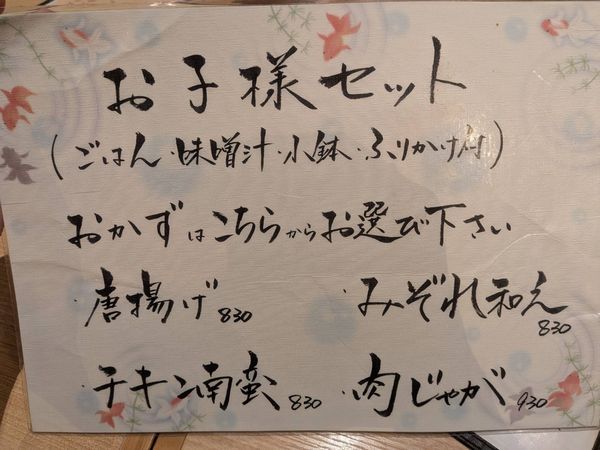 お子様セット
(ごはん・味噌汁・小鉢・ふりかけ付)
おかずはこちらからお選び下さい
・唐揚げ 830 ・みぞれ和え 830
・チキン南蛮 830 ・肉じゃが 930